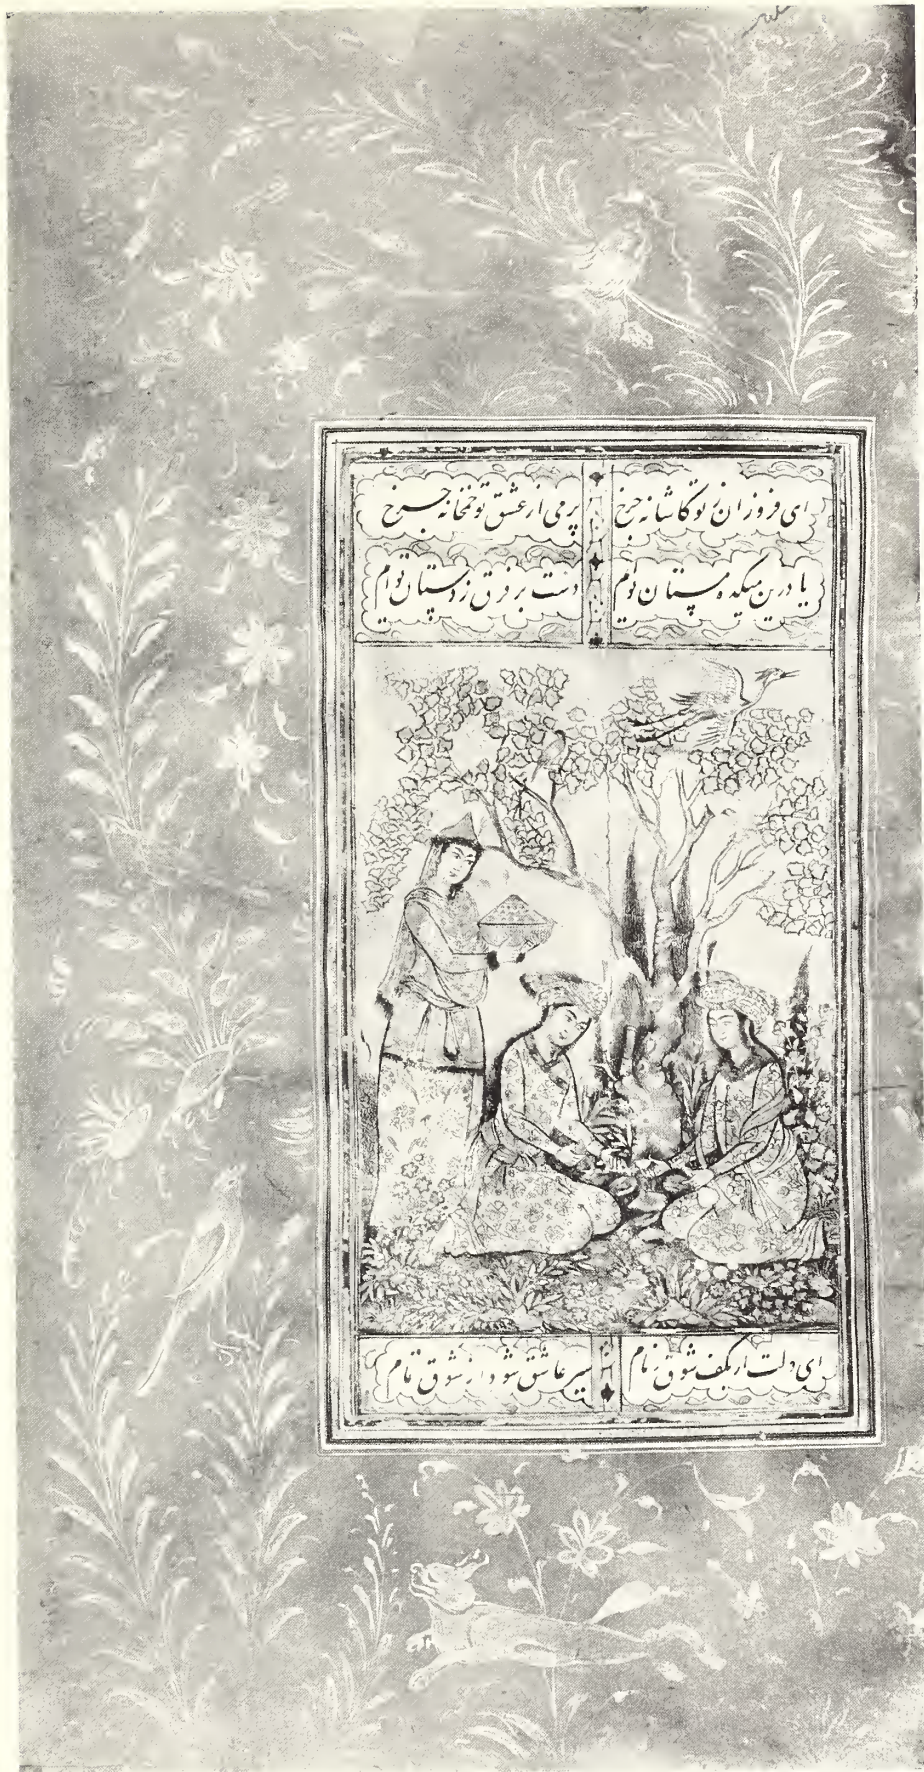 ای فروزان ز تو کاشانه چرخ
پر می از عشق تو خمخانه چرخ
یا درین میکده مستان توایم
دست بر فرق ز دستان توایم
ای دلت از کف شوق زمام
سیر عاشق شو و از شوق تمام